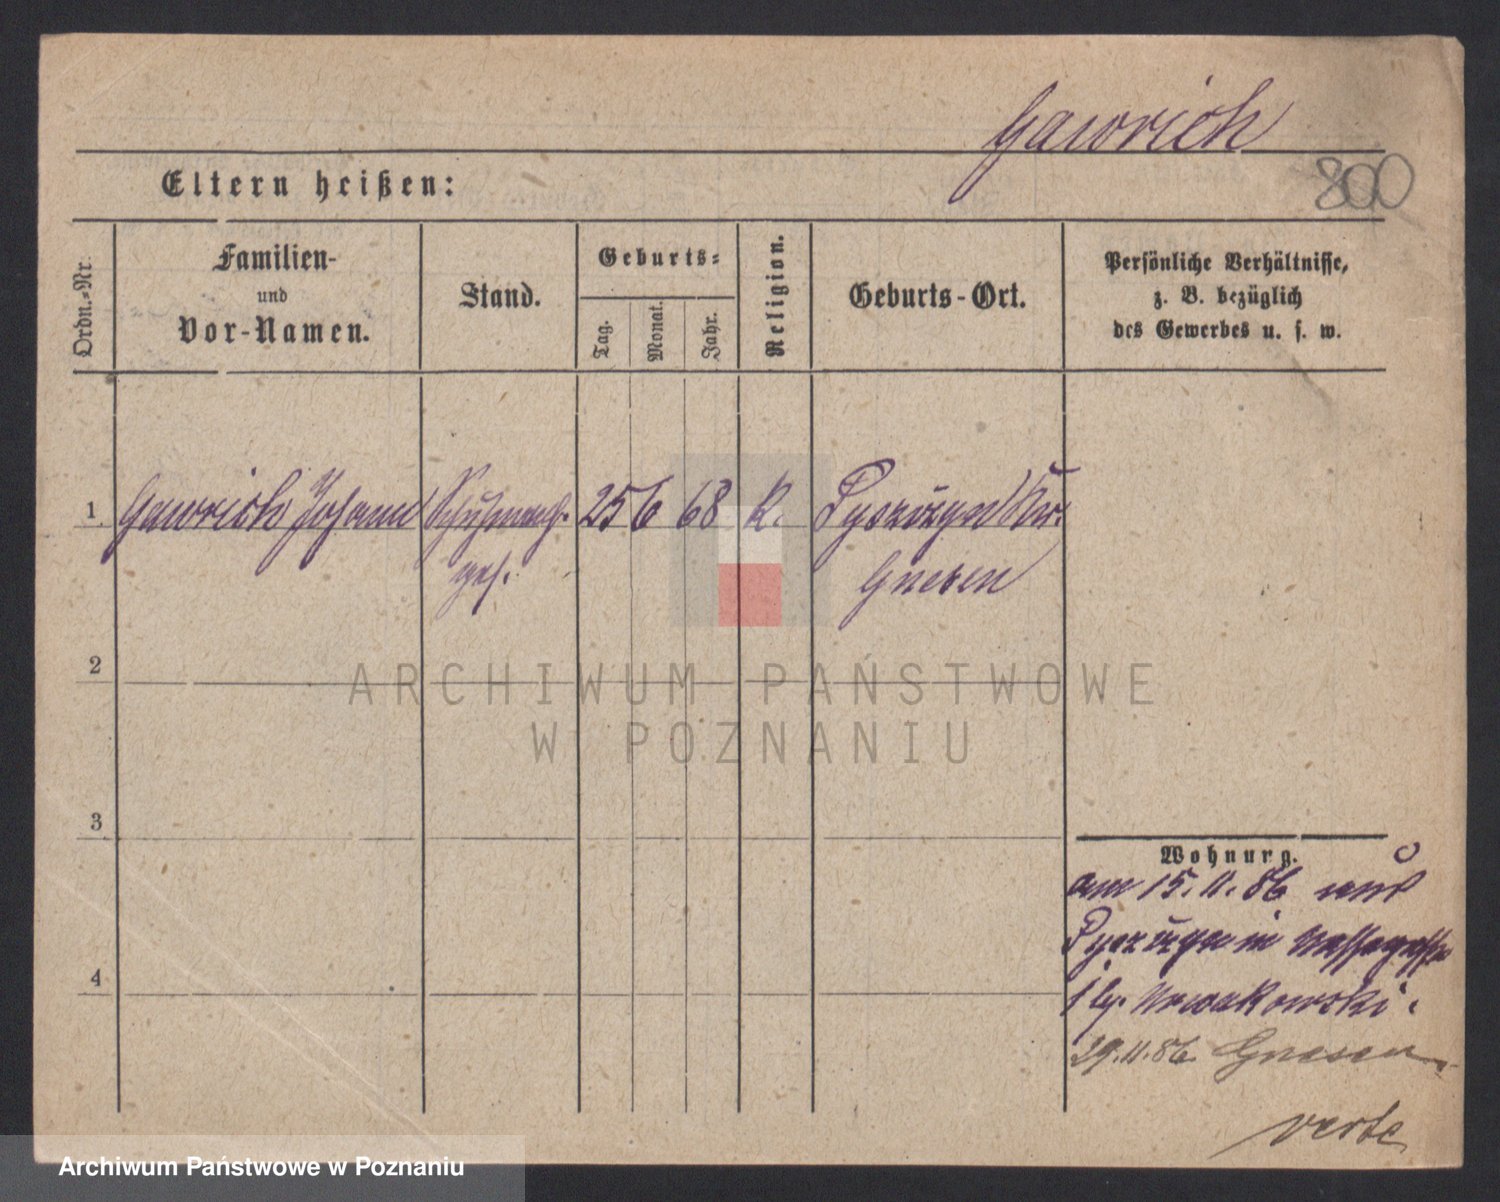 Gawrich
800
Eltern heißen:
Ordn.-Nr.
Familien-
und
Vor-Namen.
Stand.
Geburts-
Tag.
Monat.
Jahr.
Religion.
Geburts-Ort.
Persönliche Verhältnisse,
z. B. bezüglich
des Gewerbes u. s. w.
1 Gawrich Johann Schuhmach. 25 6 68 K.
ges. Gnesen
2
ARCHIWUM PAŃSTWOWE
W POZNANIU
3
Wohnung.
am 15. 11. 86 aus
4
1 by. Nowakowski.
29.11.86. Gnesen
verte
Archiwum Państwowe w Poznaniu